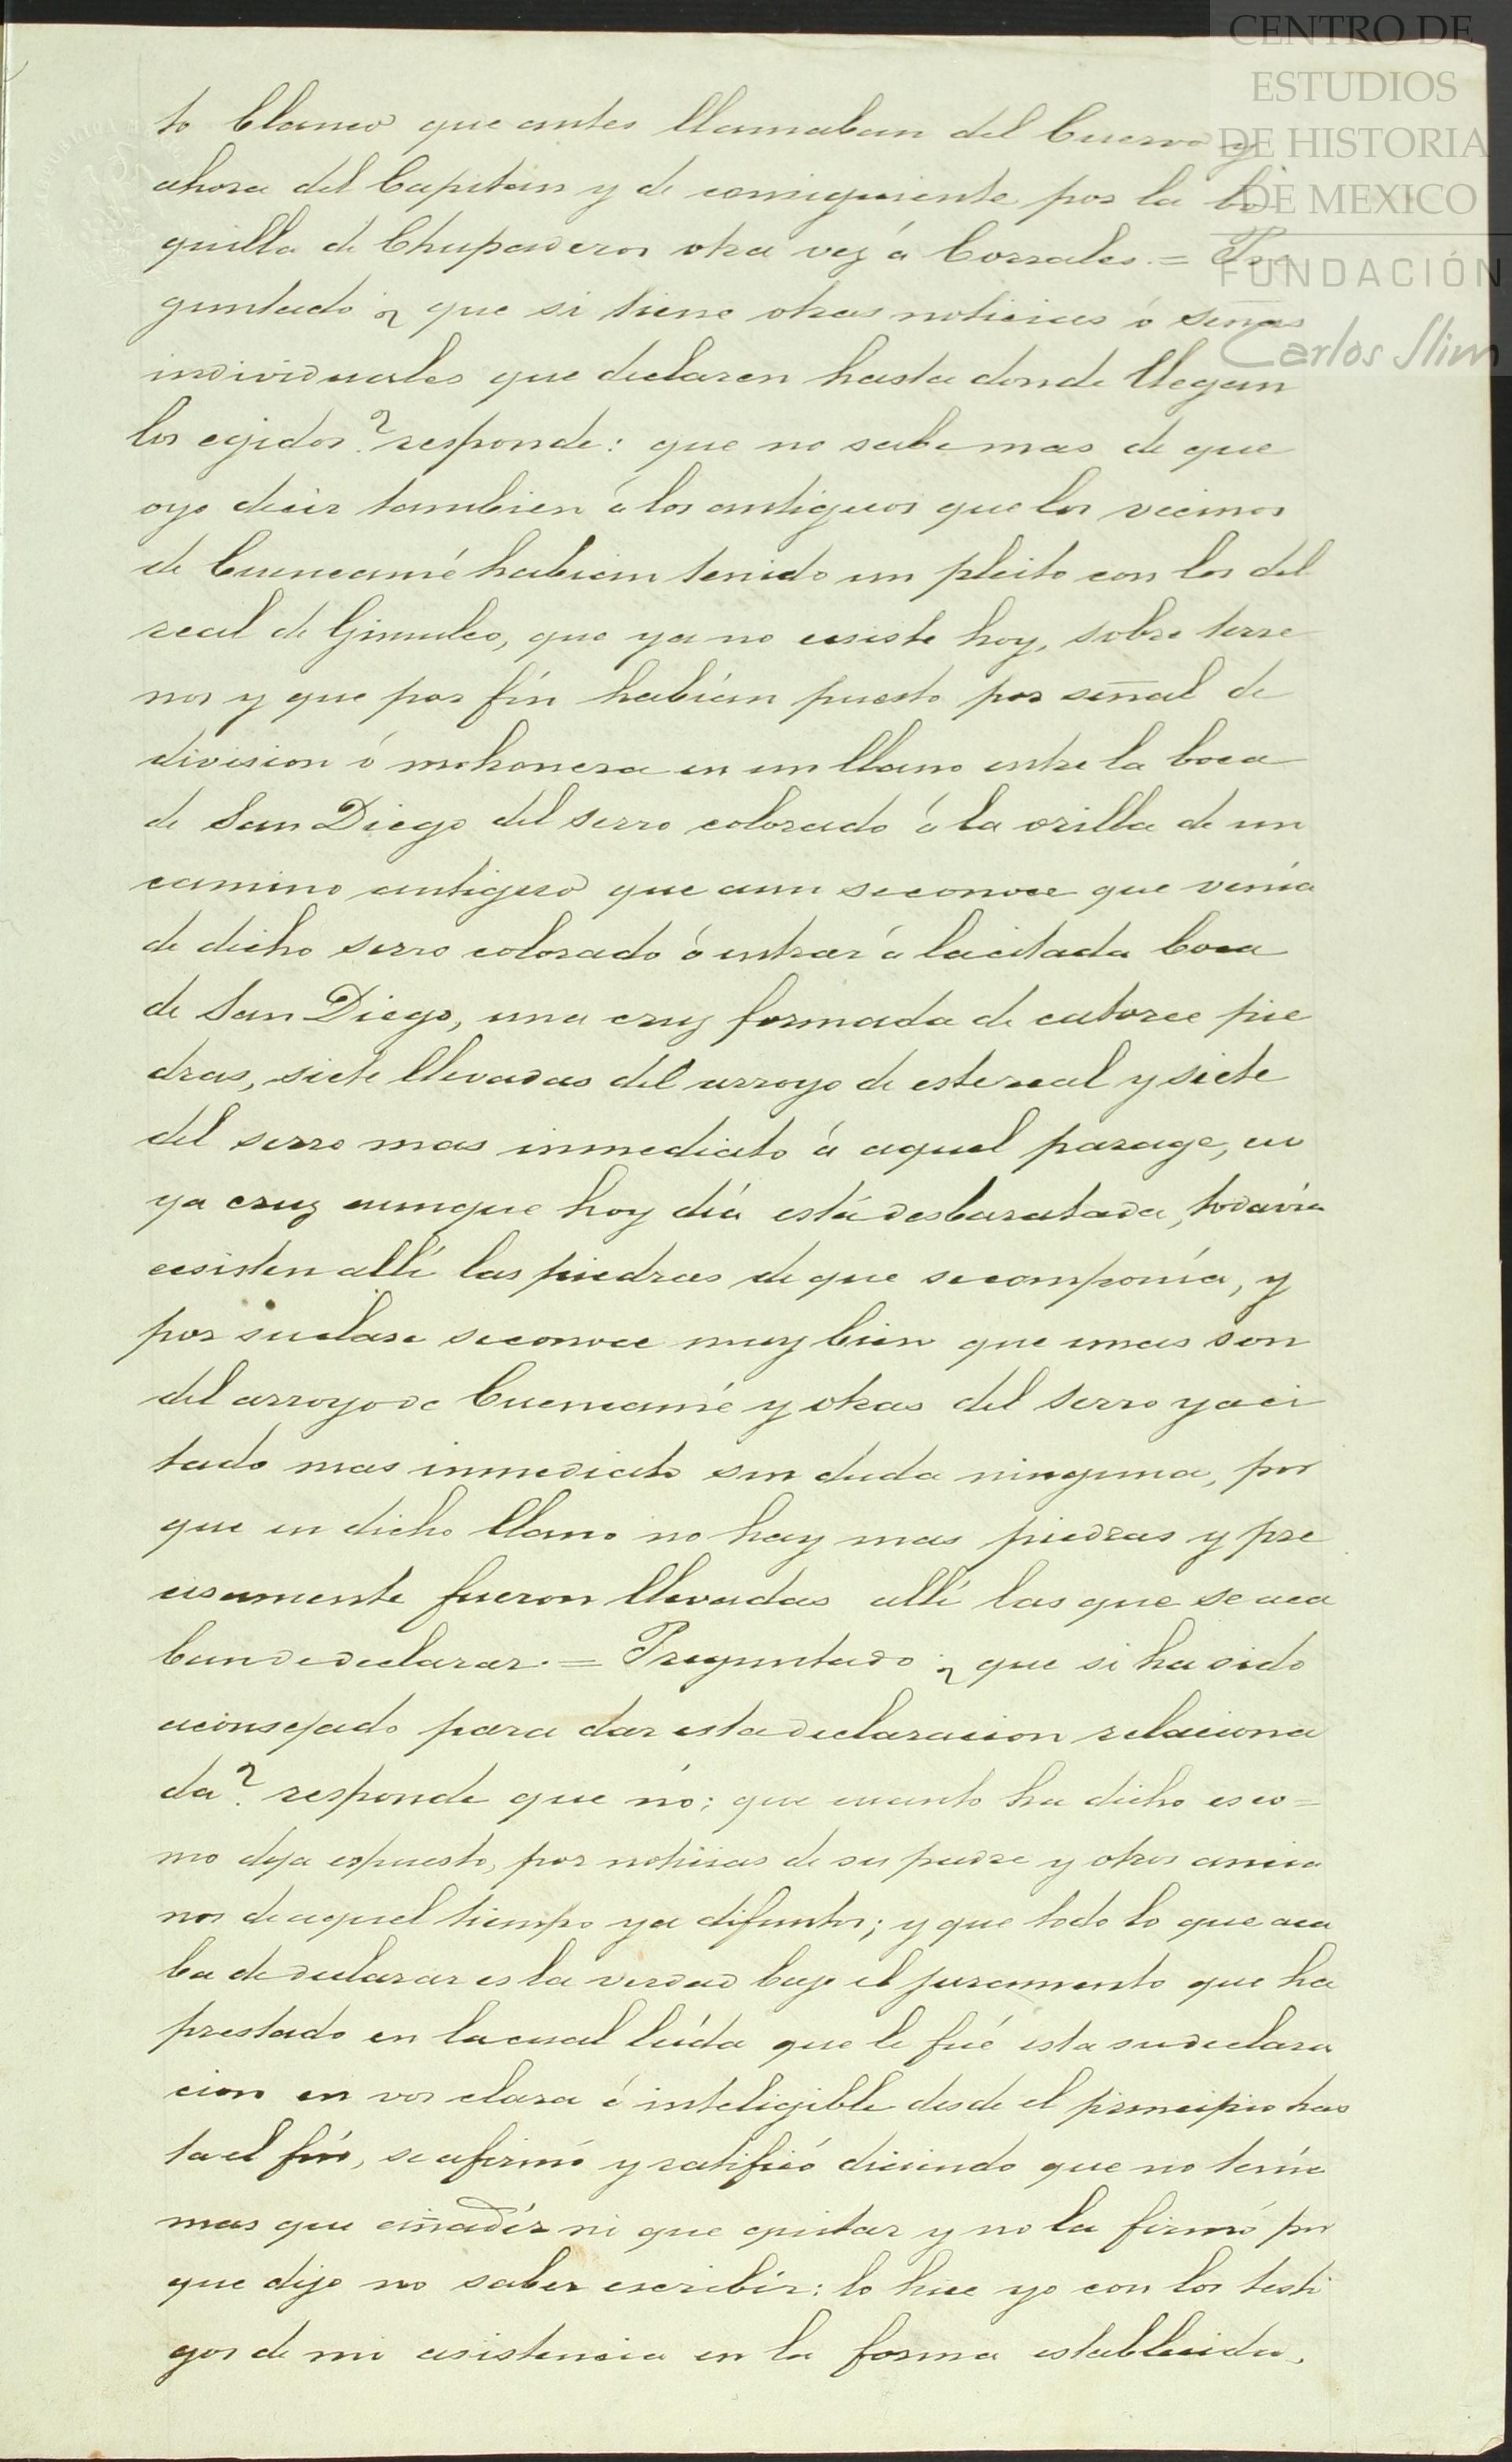 to blanco que antes llamaban del Cuervo y
ahora del Capitan y de consiguiente por la bo
quilla de Chupaderos otra vez á Corrales. = Pre
guntado ¿ que si tiene otras noticias ó señas
individuales que declaren hasta donde llegan
los egidos? responde: que no sabe mas de que
oyo decir tambien á los antiguos que los vecinos
de Cuencamé habian tenido un pleito con los del
real de Gimulco, que ya no esiste hoy, sobre terre
nos y que por fín habían puesto por señal de
division ó mohonera en un llano entre la boca
de San Diego del serro colorado á la orilla de un
camino antiguo que aun se conoce que venía
de dicho serro colorado á entrar á la citada boca
de San Diego, una cruz formada de catorce pie
dras, siete llevadas del arroyo de este real y siete
del serro mas inmediato á aquel parage, cu
ya cruz aunque hoy día está desbaratada, todavía
ecsisten allí las piedras de que se componía, y
por su clase se conoce muy bien que unas son
del arroyo de Cuencamé y otras del serro ya ci
tado mas inmediato sin duda ninguna, por
que en dicho llano no hay mas piedras y pre
cisamente fueron llevadas allí las que se aca
ban de declarar. = Preguntado ¿ que si ha sido
aconsejado para dar esta declaracion relaciona
da? responde que nó; que cuanto ha dicho es co=
mo deja espuesto, por noticias de su padre y otros ancia
nos de aquel tiempo ya difuntos; y que todo lo que aca
ba de declarar es la verdad bajo el juramento que ha
prestado en la cual leída que le fué esta su declara
cion en vos clara é inteligible desde el principio has
ta el fín, se afirmó y ratificó diciendo que no tenía
mas que añadír ni que quitar y no la firmó por
que dijo no saber escribír: lo hice yo con los testi
gos de mi asistencia en la forma establecida.
CENTRO DE
ESTUDIOS
DE HISTORIA
DE MEXICO
FUNDACIÓN
Carlos Slim